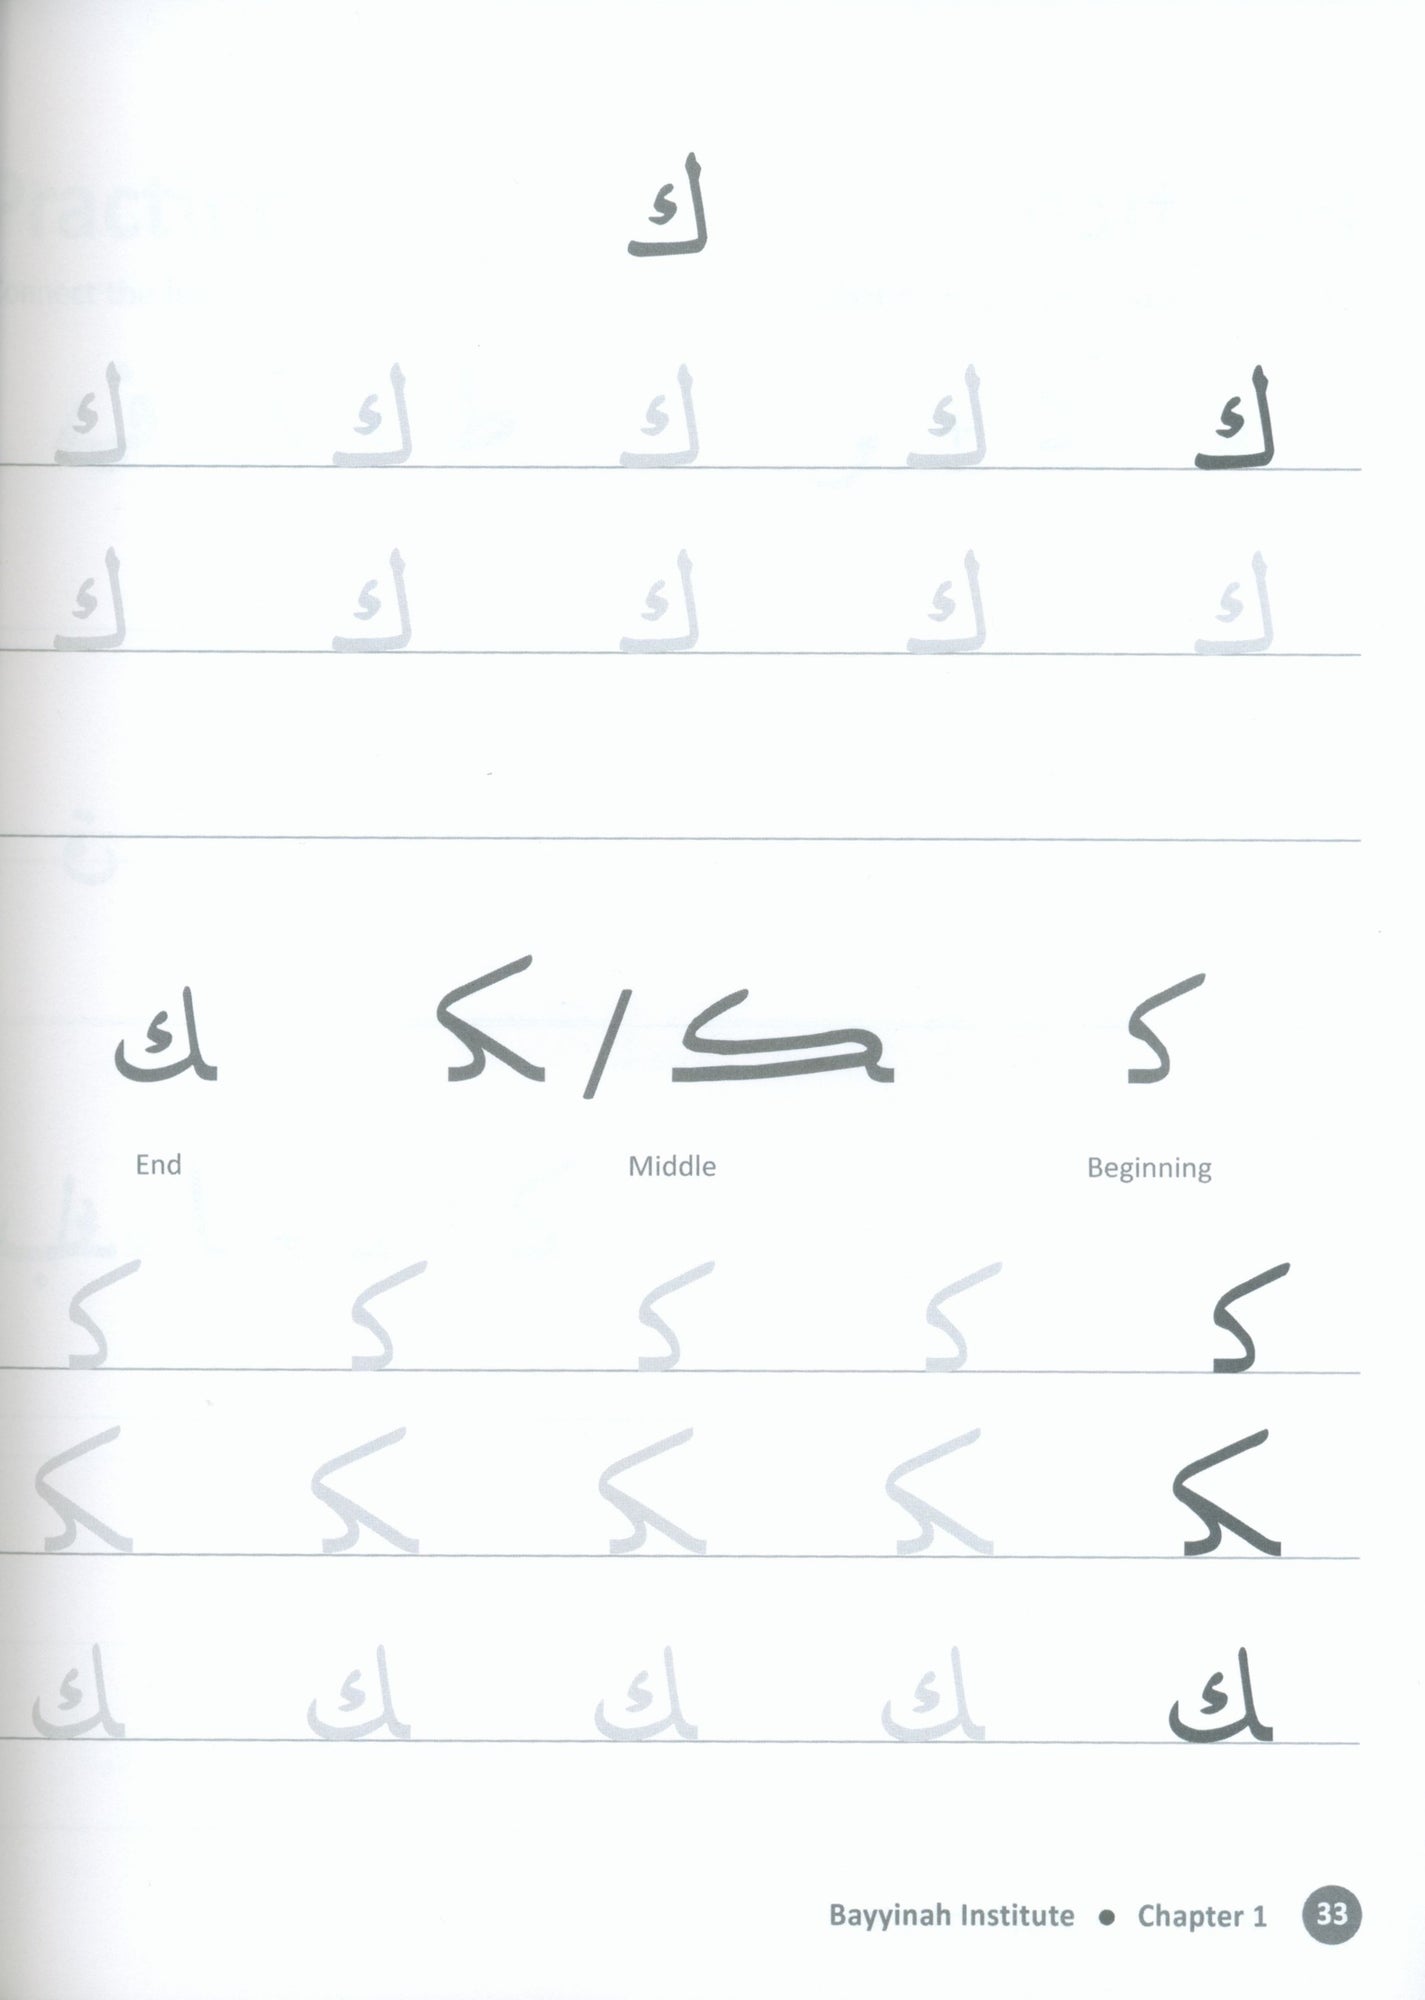 ك
ك ك ك ك ك
ك ك ك ك ك
كـ ـكـ / ـكـ ـك
Beginning Middle End
كـ كـ كـ كـ كـ
ـكـ ـكـ ـكـ ـكـ ـكـ
ـك ـك ـك ـك ـك
Bayyinah Institute • Chapter 1 33